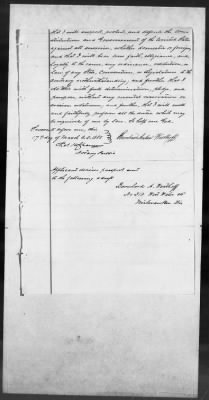 that I will support, protect, and defend the Con-
stitution and Government of the United States
against all enemies, whether domestic or foreign
and that I will bear true faith, allegiance, and
loyalty to the same, any ordinance, resolution or
Law of any State, Convention, or Legislature to the
contrary notwithstanding, and further that I
do this with full determination, pledge, and
purpose, without any mental reservation or
evasion whatsoever, and further that I will well
and faithfully perform all the duties which may
be required of me by law. So help me God.
before me, this
17th day of March A.D. 1888
Notary Public
Applicant desires passport sent
to the following address
Bernhard A.
No 510
Milwaukee Wis